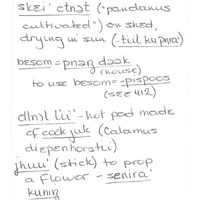 skɛi' ctnɔt ("pandanus
cultivated") on shed,
drying in sun (-tiil kupnra')
besom = pnaŋ dɔɔk
(house)
to use besom = -pispoos
(SEE 412)
dlnɔl l'ii' - hot pod made
of cɔɔk juk (Calamus
diepenhorstii)
jhuu' (stick) to prop
a flower - senira'
kuniŋ